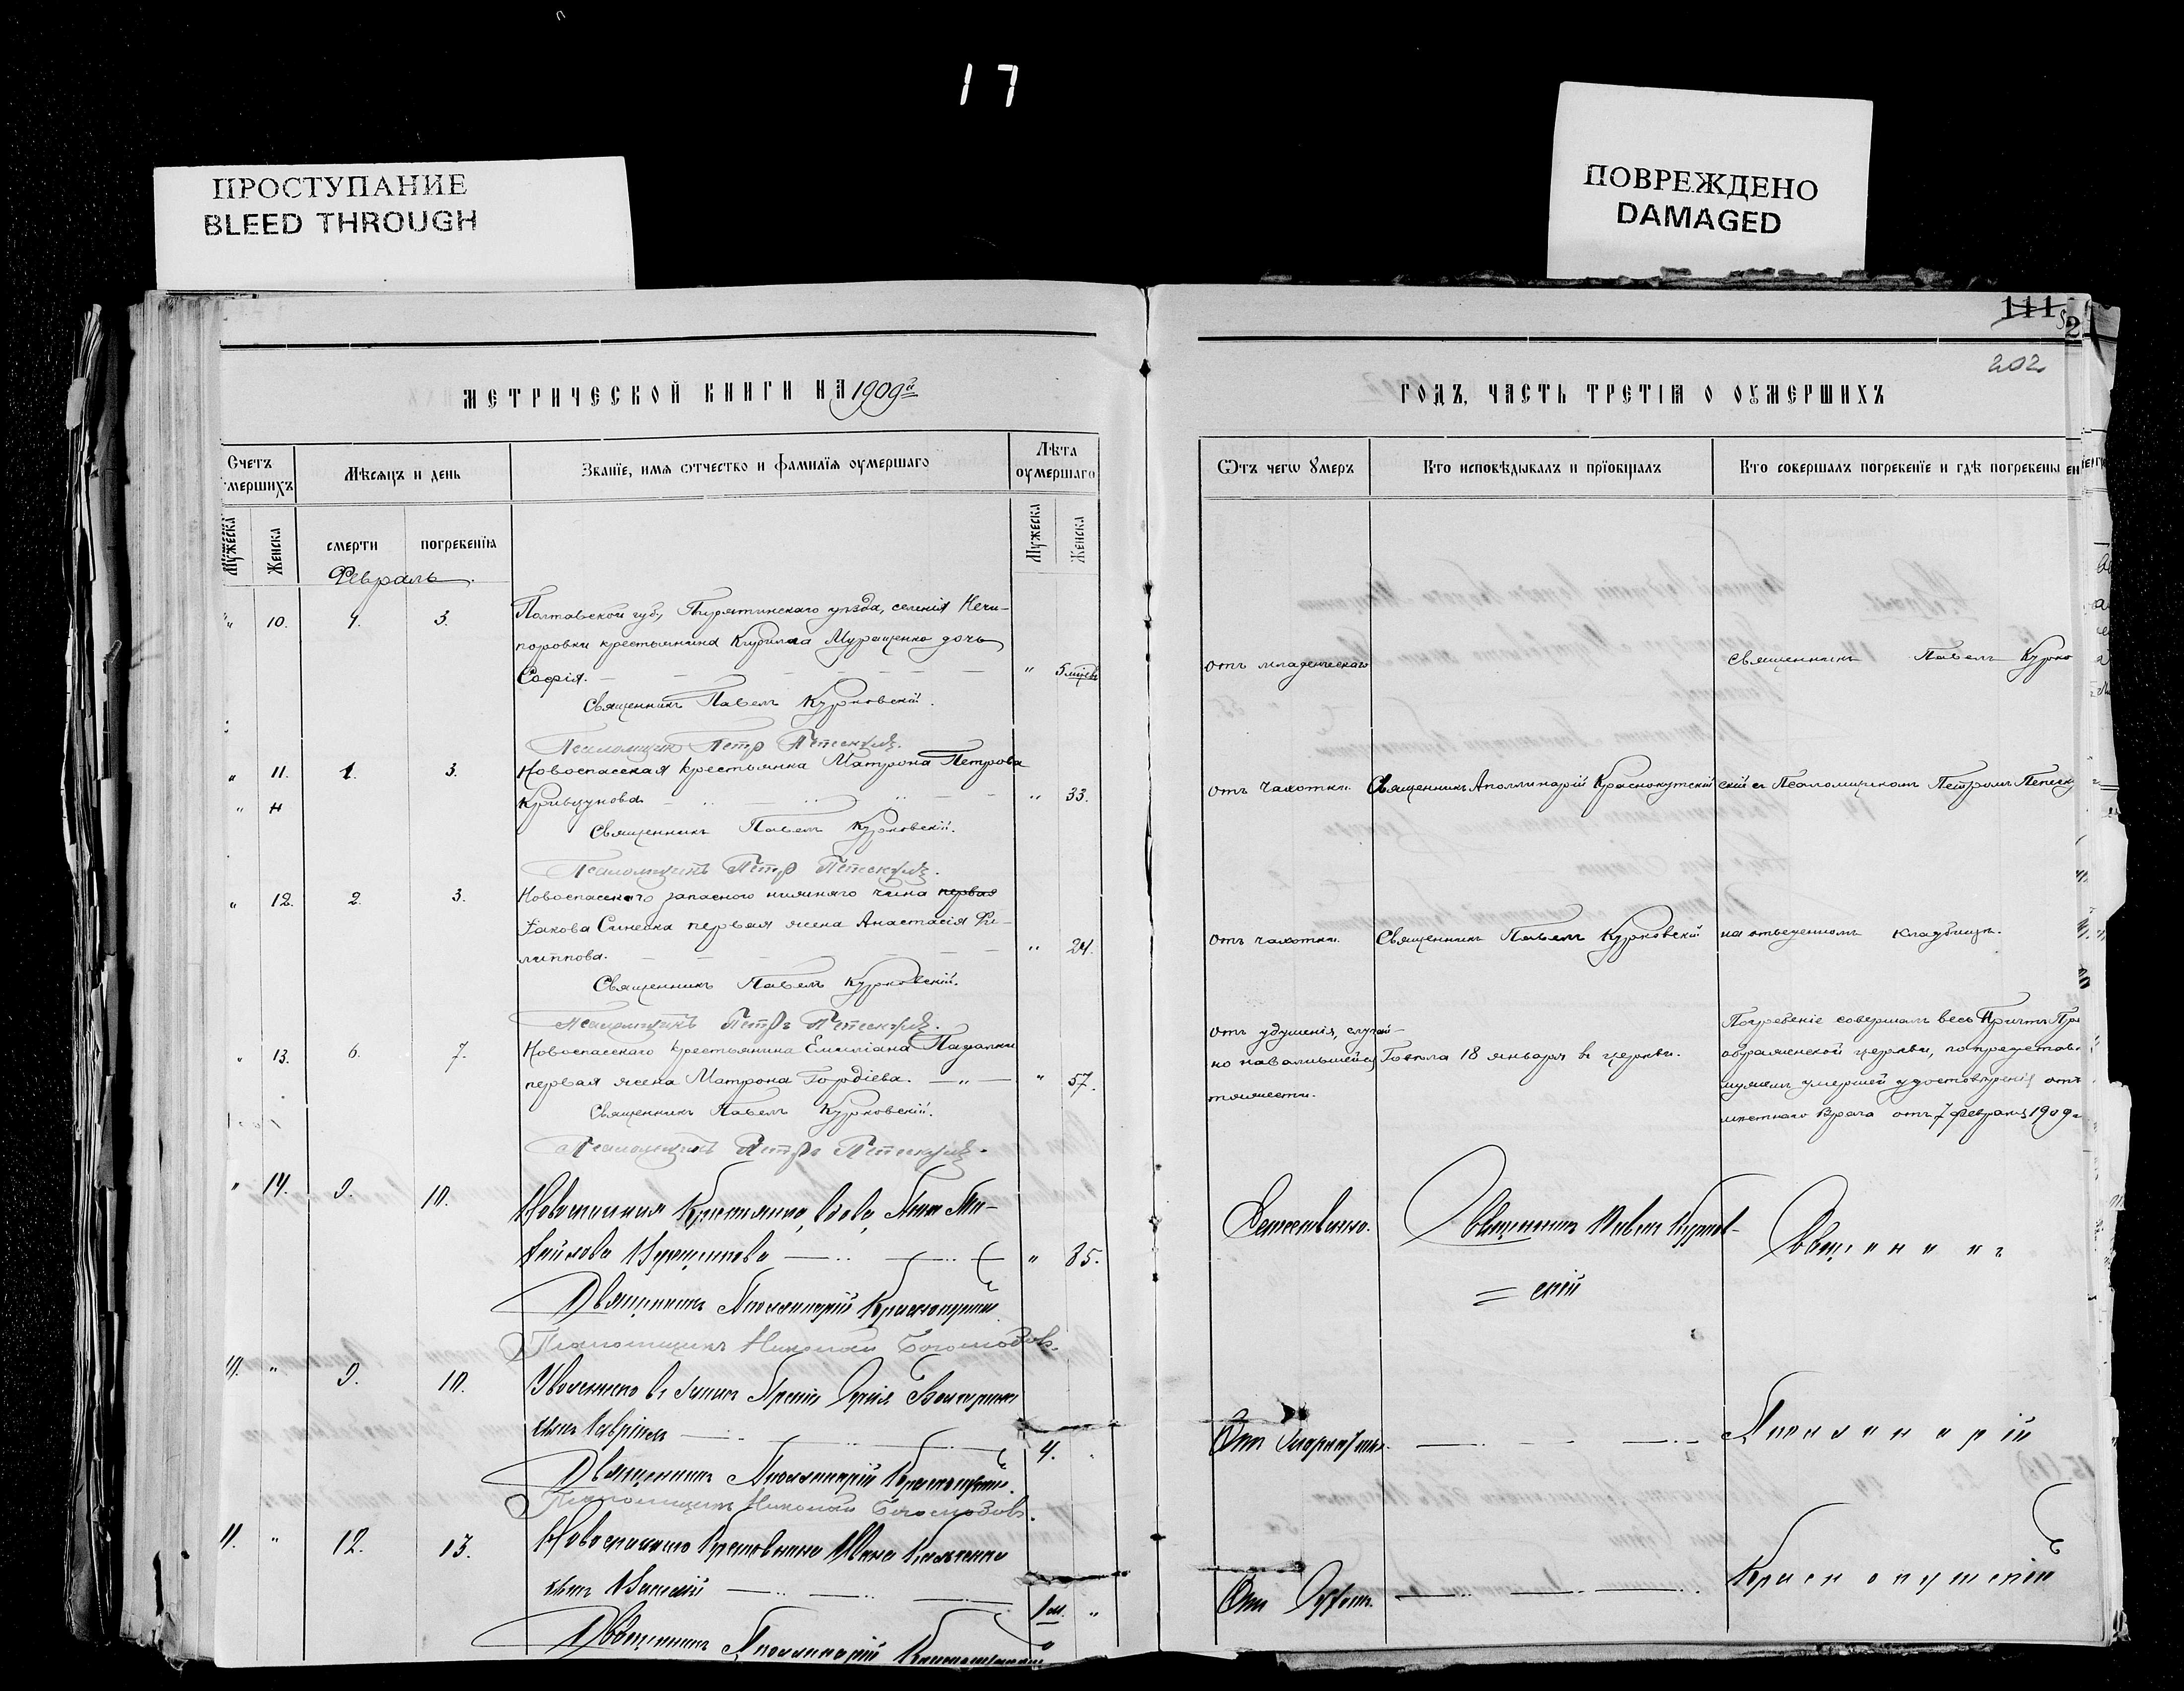 17
ПРОСТУПАНИЕ
BLEED THROUGH
ПОВРЕЖДЕНО
DAMAGED
111
2
202
МЕТРИЧЕСКОЙ КНИГИ НА 1909й
Счетъ
умершихъ
Мѣсяцъ и день
Званїе, имя ѿтчество и фамилїя оумершаго
Лѣта
оумершаго
Мужеска
Женска
смерти
погребенїя
Мужеска
Женска
Февраль
" 10. 1. 3. Полтавской губ, Пирятинскаго уѣзда, селенія Нечи-
поровки крестьянина Кирилла Муращенко дочь
Софія. " 5 мцевъ
Священникъ Павелъ Курковскій.
Псаломщикъ Петръ
" 11. 1. 3. Новоспасская крестьянка Матрона Петрова
Кривцунова " 33.
Священникъ Павелъ Курковскій.
Псаломщикъ Петръ
" 12. 2. 3. Новоспасскаго запаснаго нижняго чина первая
Іакова Синенка первая жена Анастасія Фи-
липпова. " 24.
Священникъ Павелъ Курковскій.
Псаломщикъ Петръ
" 13. 6. 7. Новоспасскаго крестьянина Емиліана Падалки
первая жена Матрона Гордіева. " 57.
Священникъ Павелъ Курковскій.
Псаломщикъ Петръ
" 14. 9. 10. Новоспасская Крестьянка, вдова, Анна Ми-
хайлова " 85.
Священникъ Аполлинарій Краснокутскій
Псаломщикъ Николай Богомазовъ.
" 9. 10.
сынъ Гавріилъ 4. "
Священникъ Аполлинарій Краснокутскій.
Псаломщикъ Николай Богомазовъ.
" 12. 13. Новоспасскаго Крестьянина Ивана
сынъ Василій 1 м. "
Священникъ Аполлинарій Краснокутскій
ГОДЪ, ЧАСТЬ ТРЕТІЯ О ОУМЕРШИХЪ
Ѿтъ чегѡ умеръ
Кто исповѣдывалъ и прїобщалъ
Кто совершалъ погребенїе и гдѣ погребены
отъ младенческаго
Священникъ Павелъ Курко
отъ чахотки. Священникъ Аполлинарій Краснокутскій
скій съ Псаломщикомъ Петромъ
отъ чахотки. Священникъ Павелъ Курковскій
на отведенномъ кладбищѣ.
отъ удушенія, случай-
но навалившейся
тяжести.
Говѣла 18 января въ церкви.
Погребеніе совершалъ весь Причтъ Пре
ображенской церкви, по представл
мужемъ умершей удостовѣренія отъ
мѣстнаго Врача отъ 7 февраля 1909 г
Естественно.
Священникъ Павелъ Курков-
= скій
Священникъ
Отъ
Аполлинарій
Отъ
Краснокутскій